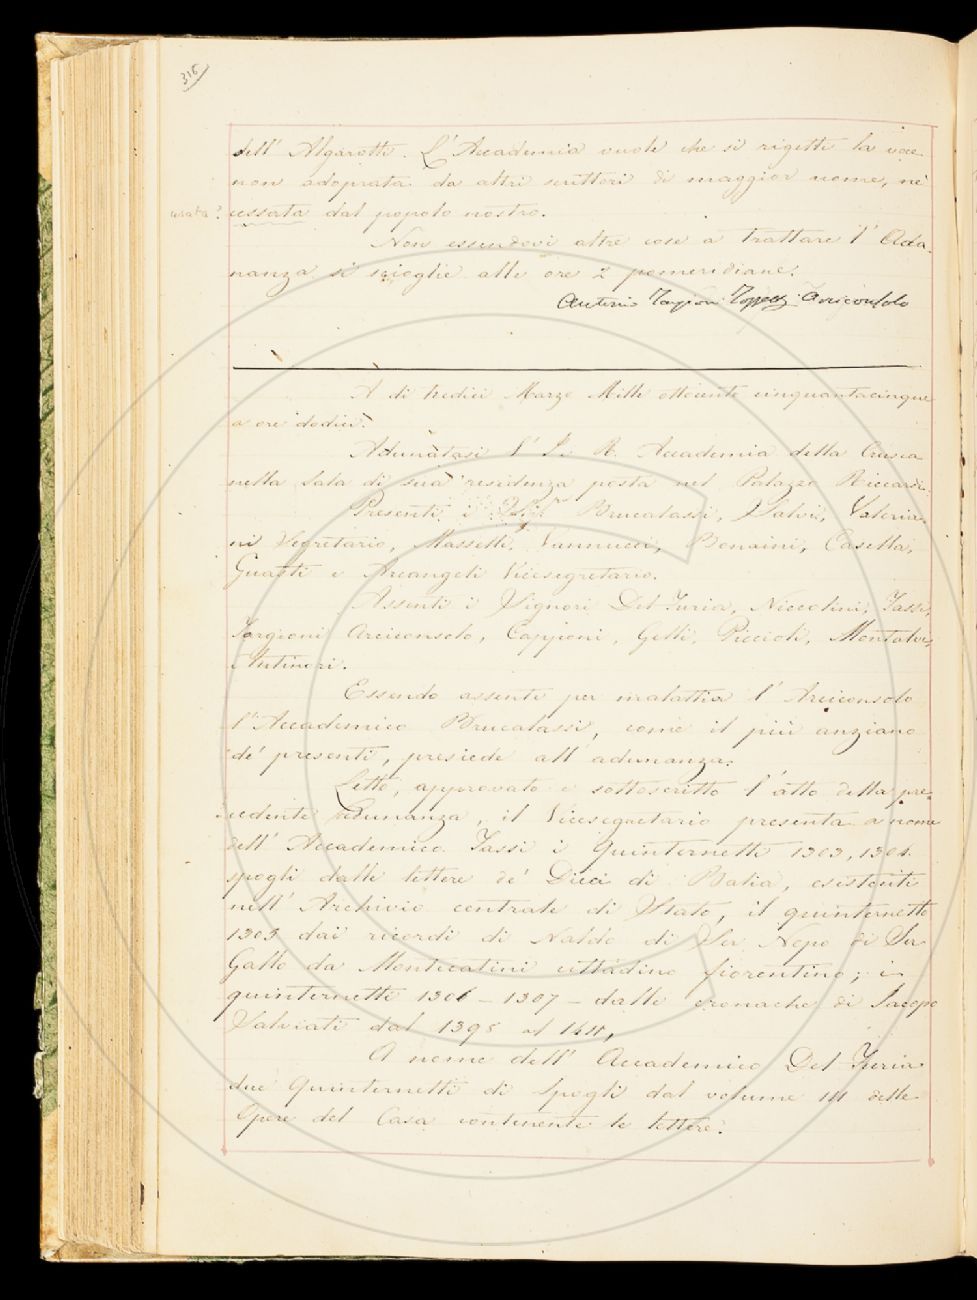 316
dell' Algarotti. L'Accademia vuole che si rigetti la voce
non adoprata da altri scrittori di maggior nome, nè
usata? cessata dal popolo nostro.
Non essendovi altre cose a trattare l' Adu
nanza si scioglie alle ore 2 pomeridiane.
Antonio Targioni Tozzetti Arciconsolo
A dì tredici Marzo Mille ottocento cinquantacinque
a ore dodici.
Adunatasi l' I. R. Accademia della Crusca
nella Sala di sua residenza posta nel Palazzo Riccardi.
Presenti i Sigri Brucalassi, Salvi, Valeria-
ni Segretario, Masselli, Vannucci, Bonaini, Casella,
Guasti e Arcangeli Vicesegretario.
Assenti i Signori Del Furia, Niccolini, Tassi,
Targioni Arciconsolo, Capponi, Gelli, Piccioli, Montalvi,
Antinori.
Essendo assente per malattia l' Arciconsolo
l'Accademico Brucalassi, come il più anziano
de' presenti, presiede all' adunanza.
Letto, approvato e sottoscritto l'atto della pre-
cedente adunanza, il Vicesegretario presenta a nome
dell' Accademico Tassi i Quinternetti 1303, 1304
spogli dalle lettere de' Dieci di Balia, esistenti
nell' Archivio centrale di Stato, il quinternetto
1305 dai ricordi di Naldo di Ser Nepo di Ser
Gallo da Montecatini cittadino fiorentino; i
quinternetti 1306 - 1307 - dalle cronache di Iacopo
Salviati dal 1398 al 1411,
A nome dell' Accademico Del Furia
due Quinternetti di Spogli dal volume III delle
Opere del Casa contenente le lettere.